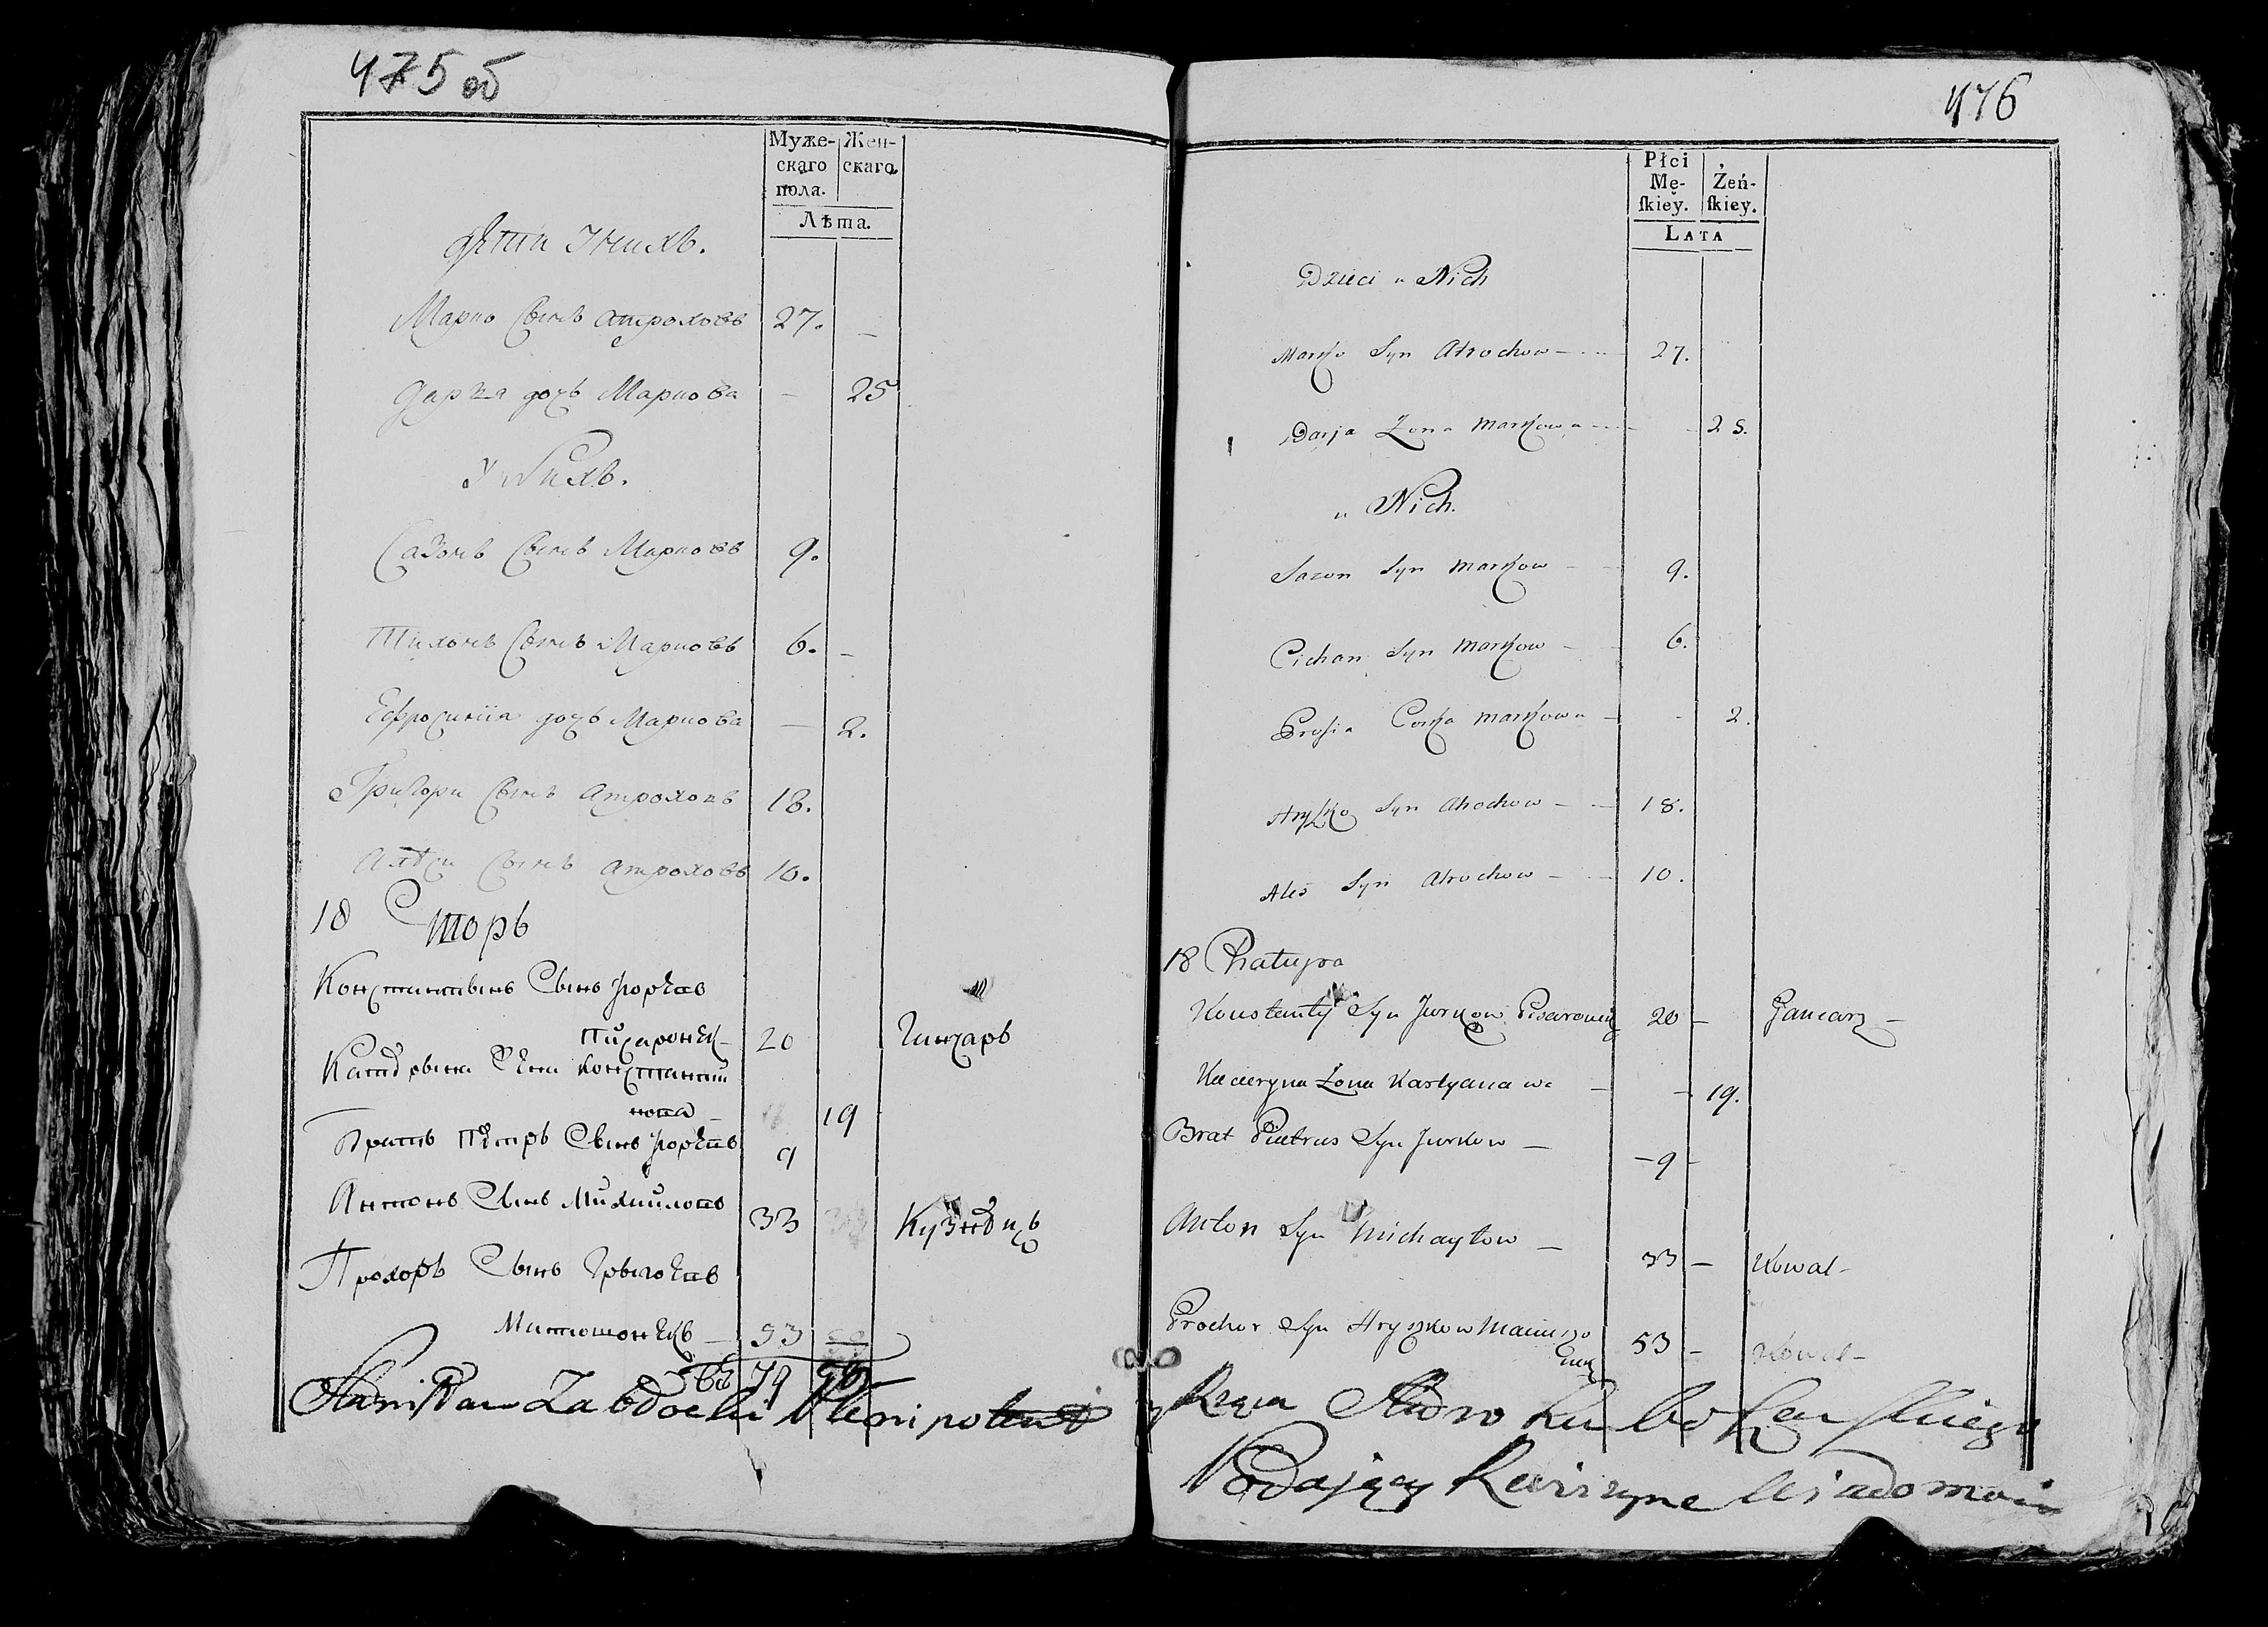 475 об
Муже-
скаго
пола.
Жен-
скаго.
Лѣта.
Дѣти Унихъ.
Марко Сынъ Атроховъ 27. –
Дарья дочь Маркова – 25
У Нихъ.
Сазонъ Сынъ Марковъ 9.
Тихонъ Сынъ Марковъ 6. –
Ефросинiя дочь Маркова – 2.
Григори Сынъ Атроховъ 18.
Алѣси Сынъ Атроховъ 10.
18 Сторъ
Константынъ Сынъ Юрковъ
Писаронек 20 Гинчаръ
Катерына Жена Константи
нова – 19
Братъ Петръ Сынъ Юрковъ 9
Антонъ Сынъ Михайловъ 33 Кузнецъ
Прохоръ Сынъ Грышковъ
Матюшонекъ – 53
79
Stanisław Zabdocki Plenipotent
476
Płci
Mę-
ſkiey.
Żeń-
ſkiey.
LATA
Dzieci u Nich
Marko Syn Atrochow – 27.
Darja Żona Markowa – 25.
u Nich.
Sazon Syn Markow – 9.
Cichan Syn Markow – 6.
Prosia Corka Markowa – 2.
Hryszko Syn Atrochow – 18.
Aleś Syn Atrochow – 10.
18 Chatupa
Konstanty Syn Jurkow Pisaronek 20 – Gancarz –
Kacieryna Żona Kastyanawa – 19.
Brat Pietrus Syn Jurkow – 9 –
Anton Syn Michayłow – 33 – Kowal –
Prochor Syn Hryszkow Maciuszo
Enek 53 – Kowal –
Podający Rewizyne Wiadomosci